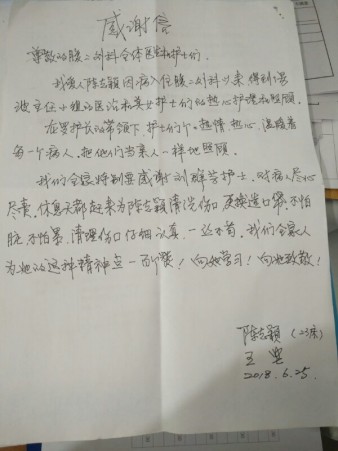 感谢信
尊敬的腺二外科全体医生护士们.
我家人陈志颖因病入住腺二外科以来,得到温
主任小组的医治和美女护士们的热心护理和照顾.
在罗护长的带领下,护士们个个热情热心,温暖着
每一个病人,把他们当亲人一样地照顾.
我们全家特别要感谢刘醉芳护士,对病人尽心
尽责,休息天都起来为陈志颖清洗伤口更换造口袋,不怕
脏,不怕累,清理伤口仔细认真,一丝不苟,我们全家人
为她的这种精神点一万个赞!向她学习!向她致敬!
陈志颖(23床)
王
2018.6.25.